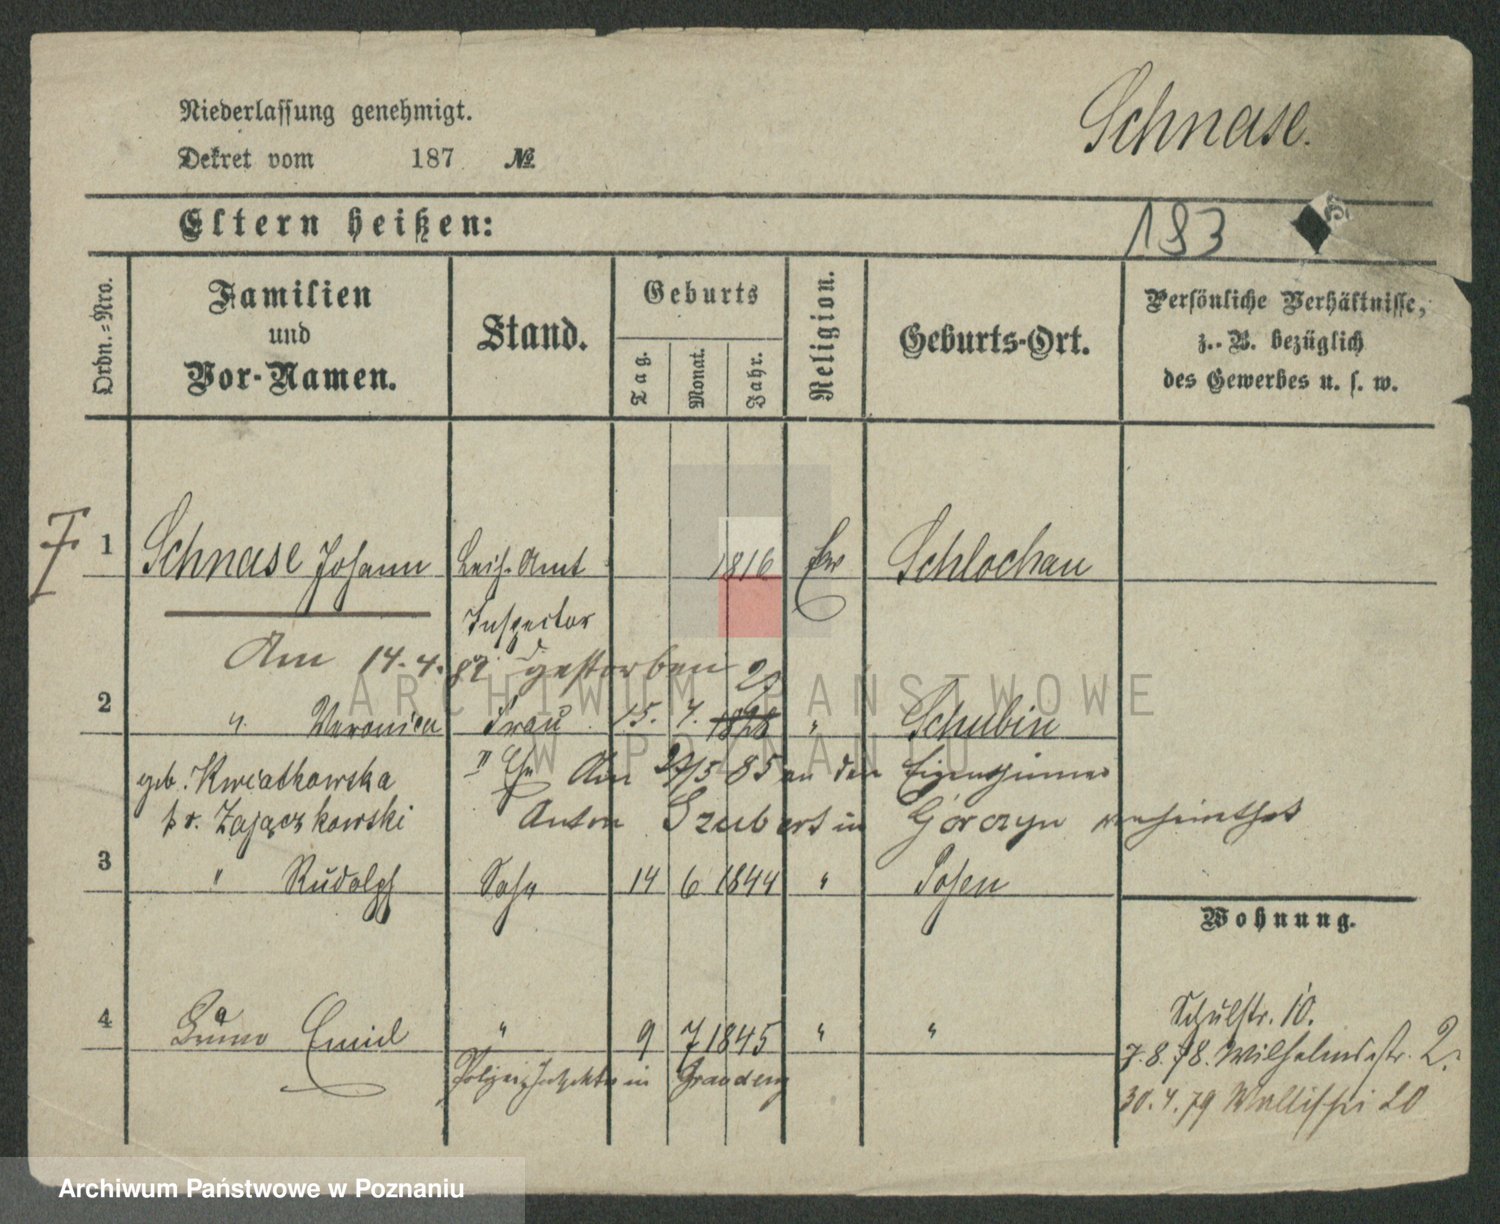 Niederlassung genehmigt.
Schnase.
Dekret vom 187 №
Eltern heißen:
183
Ordn.-Nro.
Familien und Vor-Namen.
Stand.
Geburts
Tag.
Monat.
Jahr.
Religion.
Geburts-Ort.
Persönliche Verhältnisse,
z. B. bezüglich
des Gewerbes u. s. w.
1 Schnase Johann Leih-Amt 1816 Ev Schlochau
Inspector
Am 14.4.82 gestorben
2 " Veronica Frau 15. 7. 1828 " Schubin
geb. Kwiatkowska II Ehe Am 27/5 85 an den Eigenthümer
pr. Zajączkowski Anton Szubert in Górczyn verheirathet
3 " Rudolph Sohn 14 6 1844 " Posen
Wohnung.
4 Bruno Emil " 9 7 1845 " "
Schulstr. 10.
Polizei Inspektor in Graudenz
7.8.78. Wilhelmsstr. 2.
30.4.79 Wallischei 20
ARCHIWUM PAŃSTWOWE
W POZNANIU
Archiwum Państwowe w Poznaniu